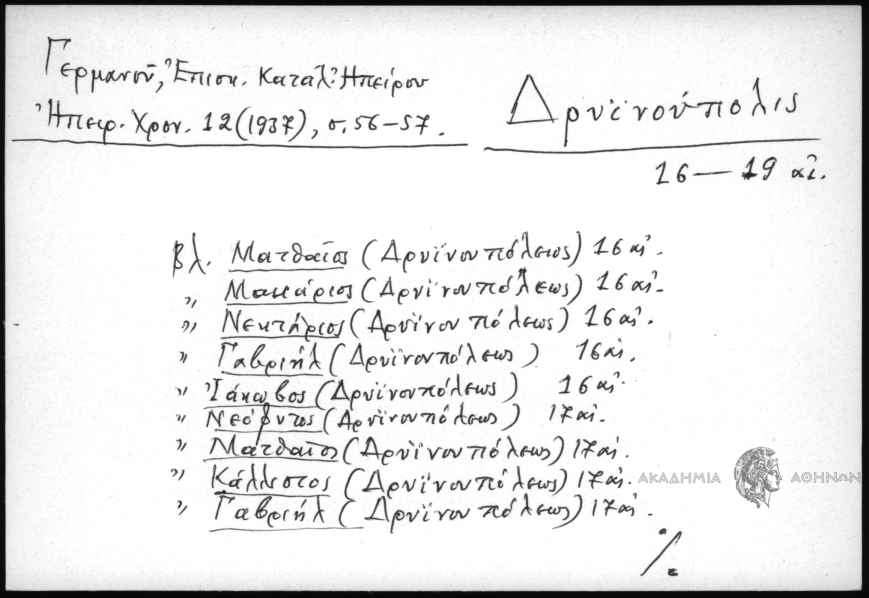 Γερμανοῦ, Ἐπισκ. Κατάλ. Ἠπείρου
Ἠπειρ. Χρον. 12 (1937), σ. 56-57.
Δρυϊνούπολις
16-19 αἰ.
βλ. Ματθαῖος (Δρυϊνουπόλεως) 16 αἰ.
" Μακάριος (Δρυϊνουπόλεως) 16 αἰ.
" Νεκτάριος (Δρυϊνουπόλεως) 16 αἰ.
" Γαβριήλ (Δρυϊνουπόλεως) 16 αἰ.
" Ἰάκωβος (Δρυϊνουπόλεως) 16 αἰ.
" Νεόφυτος (Δρυϊνουπόλεως) 17 αἰ.
" Ματθαῖος (Δρυϊνουπόλεως) 17 αἰ.
" Κάλλιστος (Δρυϊνουπόλεως) 17 αἰ.
" Γαβριήλ (Δρυϊνουπόλεως) 17 αἰ.
ΑΚΑΔΗΜΙΑ ΑΘΗΝΩΝ
./.